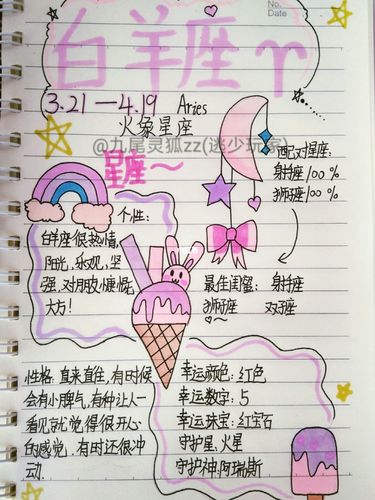 No.
Date
白羊座 ♈
3.21—4.19 Aries
火象星座
@九尾灵狐zz(逃少玩家)
星座~
配对星座:
射手座100%
狮子座100%
个性:
白羊座很热情,
阳光,乐观,坚
强,对朋友慷慨
大方!
最佳闺蜜: 射手座
狮子座 双子座
性格:直来直往,有时候
会有小脾气,有种让人一
看见就觉得很开心
的感觉,有时还很冲
动.
幸运颜色:红色
幸运数字:5
幸运珠宝:红宝石
守护星:火星
守护神:阿瑞斯